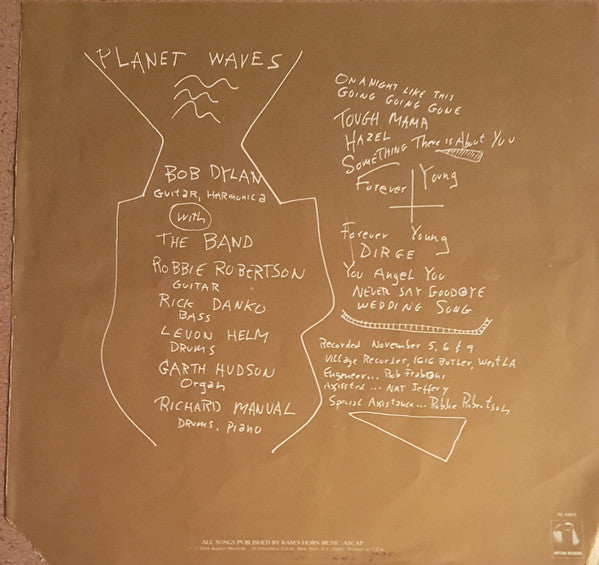 PLANET WAVES
BOB DYLAN
GUITAR, HARMONICA
with
THE BAND
ROBBIE ROBERTSON
GUITAR
RICK DANKO
BASS
LEVON HELM
DRUMS
GARTH HUDSON
Organ
RICHARD MANUAL
DRUMS, PIANO
ON A NIGHT LIKE THIS
GOING GOING GONE
TOUGH MAMA
HAZEL
SOMETHING There is About You
Forever Young
Forever Young
DIRGE
You Angel You
NEVER SAY GOODBYE
WEDDING SONG
Recorded November 5, 6 & 9
Village Recorder, 1616 Butler, West LA
Engineer... Rob Fraboni
Assisted... NAT Jeffery
Special Assistance... Robbie Robertson
ALL SONGS PUBLISHED BY RAM'S HORN MUSIC ASCAP
1974 Asylum Records
New York, N.Y.
Printed in U.S.A.
ASYLUM RECORDS